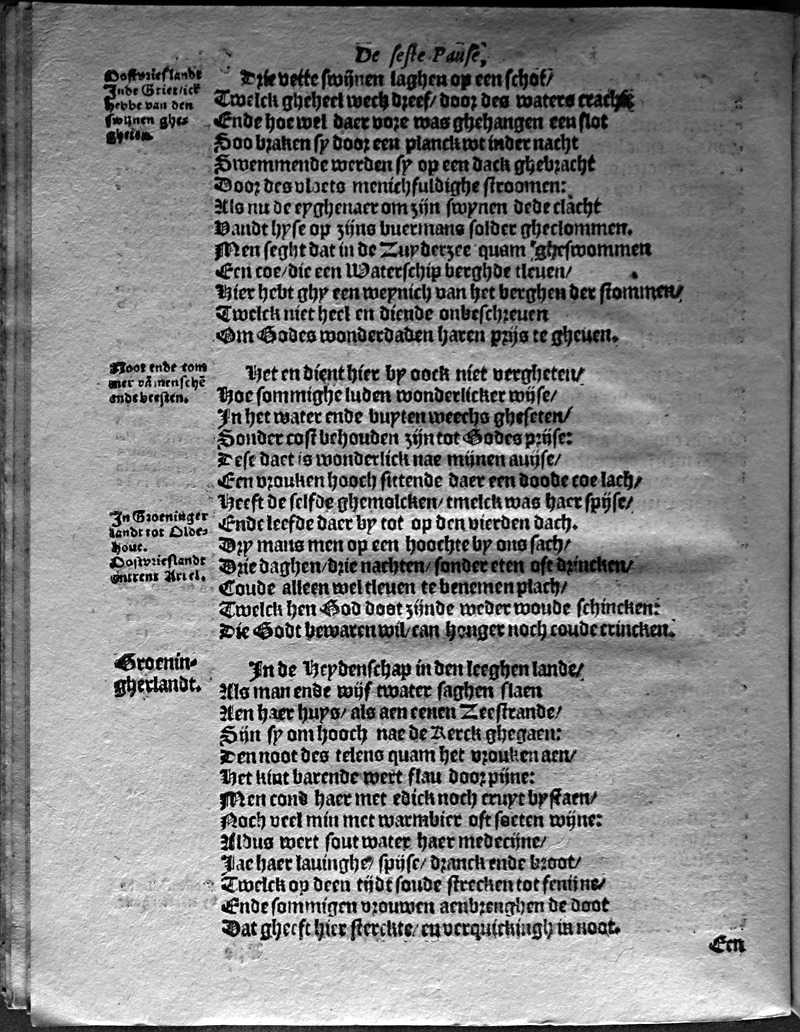 De seste Pause,
Oostvrieslandt
Inde Griet/ick
hebbe van den
swijnen ghes
gheten.
Drie vette swijnen laghen op een schot/
Twelck gheheel wech dreef/ door des waters cracht
Ende hoe wel daer vore was ghehangen een slot
Soo braken sy door een planck wt inder nacht
Swemmende werden sy op een dack ghebracht
Door des vloets menichfuldighe stroomen:
Als nu de eyghenaer om zijn swynen dede clacht
Vandt hyse op zijns buermans solder gheclommen.
Men seght dat in de Zuyderzee quam gheswommen
Een coe/die een Waterschip berghde tleuen/
Hier hebt ghy een weynich van het berghen der stommen/
Twelck niet heel en diende onbeschreuen
Om Godes wonderdaden haren prijs te gheuen.
Noot ende com
mer vā menschē
ende beesten.
Het en dient hier by oock niet vergheten/
Hoe sommighe luden wonderlicker wijse/
In het water ende buyten weechs gheseten/
Sonder cost behouden zijn tot Godes prijse:
Dese daet is wonderlick nae mijnen auijse/
Een vrouken hooch sittende daer een doode coe lach/
Heeft de selfde ghemolcken/ tmelck was haer spijse/
In Groeninger
landt tot Olde-
houe.
Oostvrieslandt
ontrent Ariel.
Ende leefde daer by tot op den vierden dach.
Dry mans men op een hoochte by ons sach/
Drie daghen/drie nachten/ sonder eten oft drincken/
Coude alleen wel tleuen te benemen plach/
Twelck hen God doot zijnde weder woude schincken:
Die Godt bewaren wil/can honger noch coude crincken.
Groenin-
gherlandt.
In de Heydenschap in den leeghen lande/
Als man ende wijf twater saghen slaen
Aen haer huys/ als aen eenen Zeestrande/
Sijn sy om hooch nae de Kerck ghegaen:
Den noot des telens quam het vrouken aen/
Het kint barende wert flau door pijne:
Men cond haer met edick noch cruyt bystaen/
Noch veel min met warmbier oft soeten wijne:
Aldus wert sout water haer medecijne/
Jae haer lauinghe/ spijse/ dranck ende broot/
Twelck op deen tijdt soude strecken tot fenijne/
Ende sommigen vrouwen aenbrenghen de doot
Dat gheeft hier sterckte/ en verquickingh in noot.
Een